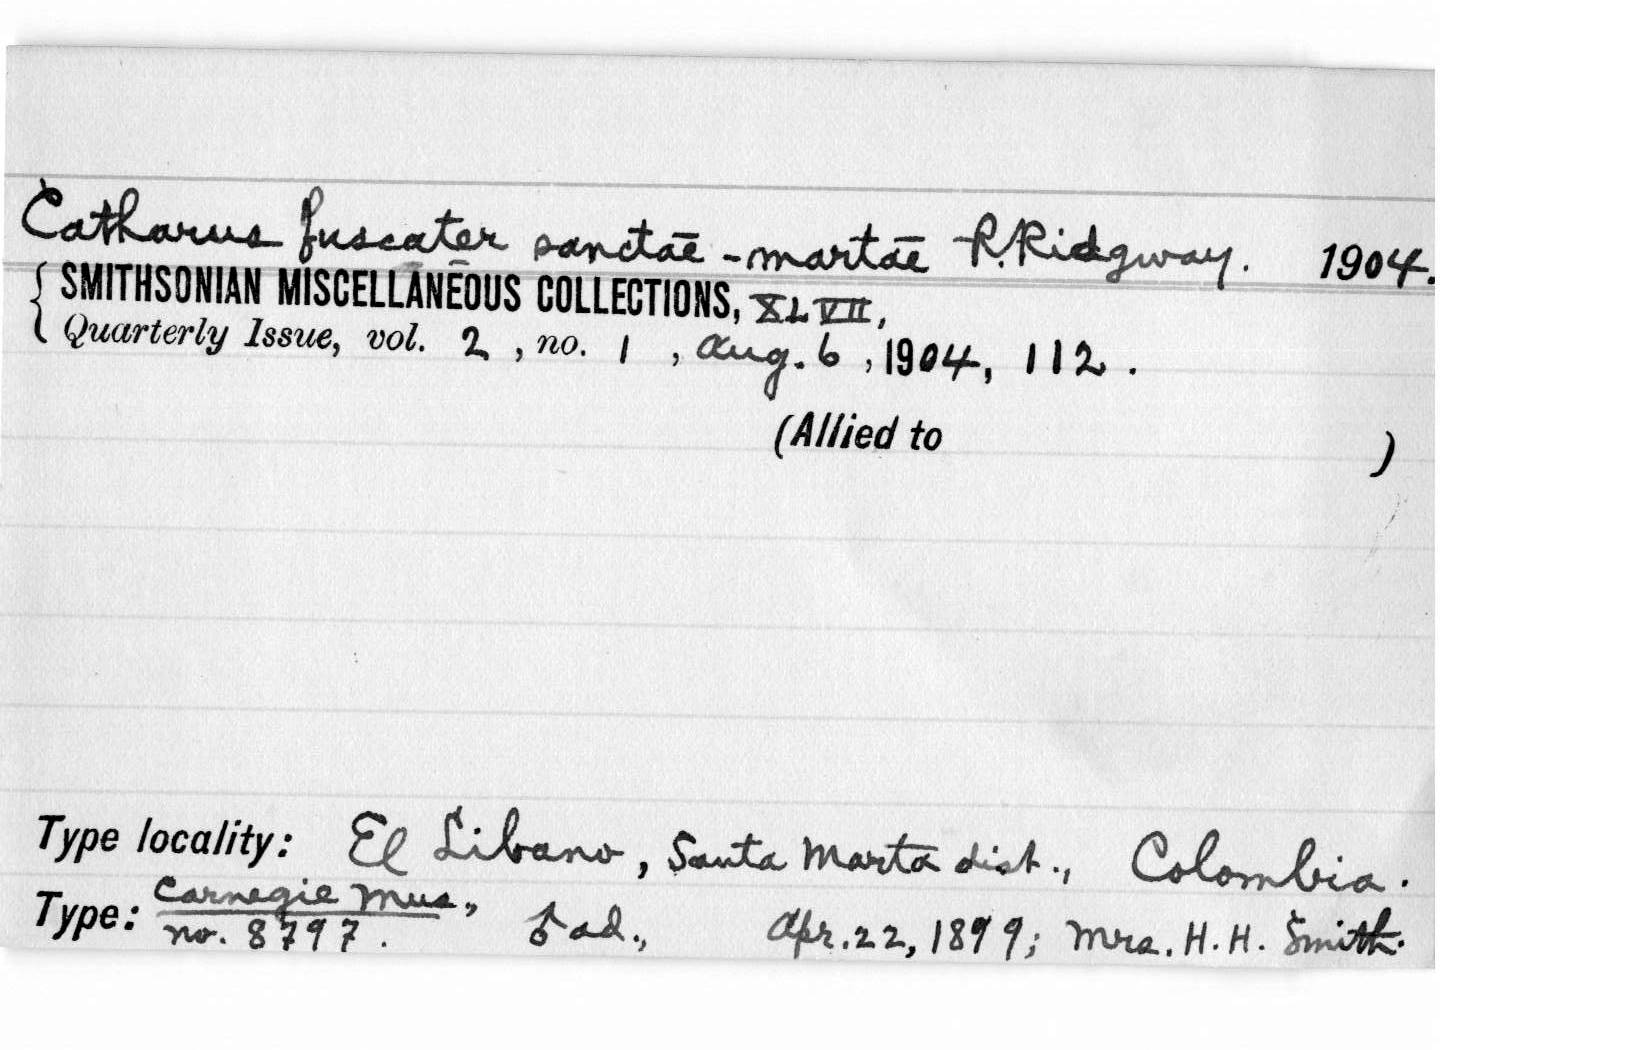 Catharus fuscater sanctæ-martæ R. Ridgway. 1904.
SMITHSONIAN MISCELLANEOUS COLLECTIONS, XLVII,
Quarterly Issue, vol. 2, no. 1, Aug. 6, 1904, 112.
(Allied to )
Type locality: El Libano, Santa Marta dist., Colombia.
Type: Carnegie Mus., no. 8797. ♂ ad., Apr. 22, 1899; Mrs. H. H. Smith.